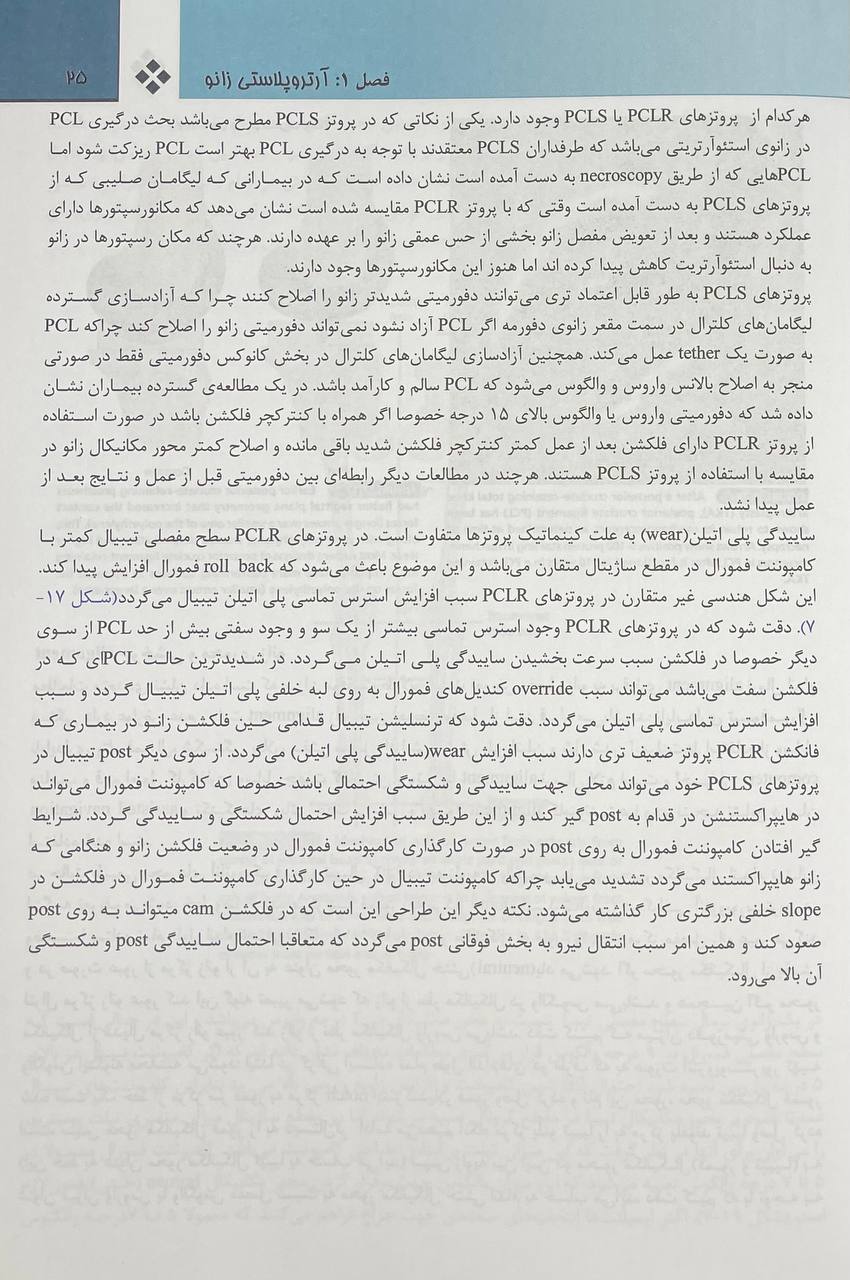 فصل ۱: آرتروپلاستی زانو
۲۵
هرکدام از پروتزهای PCLR یا PCLS وجود دارد. یکی از نکاتی که در پروتز PCLS مطرح می‌باشد بحث درگیری PCL
در زانوی استئوآرتریتی می‌باشد که طرفداران PCLS معتقدند با توجه به درگیری PCL بهتر است PCL ریزکت شود اما
PCLهایی که از طریق necroscopy به دست آمده است نشان داده است که در بیمارانی که لیگامان صلیبی که از
پروتزهای PCLS به دست آمده است وقتی که با پروتز PCLR مقایسه شده است نشان می‌دهد که مکانورسپتورها دارای
عملکرد هستند و بعد از تعویض مفصل زانو بخشی از حس عمقی زانو را بر عهده دارند. هرچند که مکان رسپتورها در زانو
به دنبال استئوآرتریت کاهش پیدا کرده اند اما هنوز این مکانورسپتورها وجود دارند.
پروتزهای PCLS به طور قابل اعتماد تری می‌توانند دفورمیتی شدیدتر زانو را اصلاح کنند چرا که آزادسازی گسترده
لیگامان‌های کلترال در سمت مقعر زانوی دفورمه اگر PCL آزاد نشود نمی‌تواند دفورمیتی زانو را اصلاح کند چراکه PCL
به صورت یک tether عمل می‌کند. همچنین آزادسازی لیگامان‌های کلترال در بخش کانوکس دفورمیتی فقط در صورتی
منجر به اصلاح بالانس واروس و والگوس می‌شود که PCL سالم و کارآمد باشد. در یک مطالعه‌ی گسترده بیماران نشان
داده شد که دفورمیتی واروس یا والگوس بالای ۱۵ درجه خصوصا اگر همراه با کنترکچر فلکشن باشد در صورت استفاده
از پروتز PCLR دارای فلکشن بعد از عمل کمتر کنترکچر فلکشن شدید باقی مانده و اصلاح کمتر محور مکانیکال زانو در
مقایسه با استفاده از پروتز PCLS هستند. هرچند در مطالعات دیگر رابطه‌ای بین دفورمیتی قبل از عمل و نتایج بعد از
عمل پیدا نشد.
ساییدگی پلی اتیلن(wear) به علت کینماتیک پروتزها متفاوت است. در پروتزهای PCLR سطح مفصلی تیبیال کمتر با
کامپوننت فمورال در مقطع ساژیتال متقارن می‌باشد و این موضوع باعث می‌شود که roll back فمورال افزایش پیدا کند.
این شکل هندسی غیر متقارن در پروتزهای PCLR سبب افزایش استرس تماسی پلی اتیلن تیبیال می‌گردد(شکل ۱۷-
۷). دقت شود که در پروتزهای PCLR وجود استرس تماسی بیشتر از یک سو و وجود سفتی بیش از حد PCL از سوی
دیگر خصوصا در فلکشن سبب سرعت بخشیدن ساییدگی پلی اتیلن می‌گردد. در شدیدترین حالت PCLای که در
فلکشن سفت می‌باشد می‌تواند سبب override کندیل‌های فمورال به روی لبه خلفی پلی اتیلن تیبیال گردد و سبب
افزایش استرس تماسی پلی اتیلن می‌گردد. دقت شود که ترنسلیشن تیبیال قدامی حین فلکشن زانو در بیماری که
فانکشن PCLR پروتز ضعیف تری دارند سبب افزایش wear(ساییدگی پلی اتیلن) می‌گردد. از سوی دیگر post تیبیال در
پروتزهای PCLS خود می‌تواند محلی جهت ساییدگی و شکستگی احتمالی باشد خصوصا که کامپوننت فمورال می‌تواند
در هایپراکستنشن در قدام به post گیر کند و از این طریق سبب افزایش احتمال شکستگی و ساییدگی گردد. شرایط
گیر افتادن کامپوننت فمورال به روی post در صورت کارگذاری کامپوننت فمورال در وضعیت فلکشن زانو و هنگامی که
زانو هایپراکستند می‌گردد تشدید می‌یابد چراکه کامپوننت تیبیال در حین کارگذاری کامپوننت فمورال در فلکشن در
slope خلفی بزرگتری کار گذاشته می‌شود. نکته دیگر این طراحی این است که در فلکشن cam میتواند به روی post
صعود کند و همین امر سبب انتقال نیرو به بخش فوقانی post می‌گردد که متعاقبا احتمال ساییدگی post و شکستگی
آن بالا می‌رود.